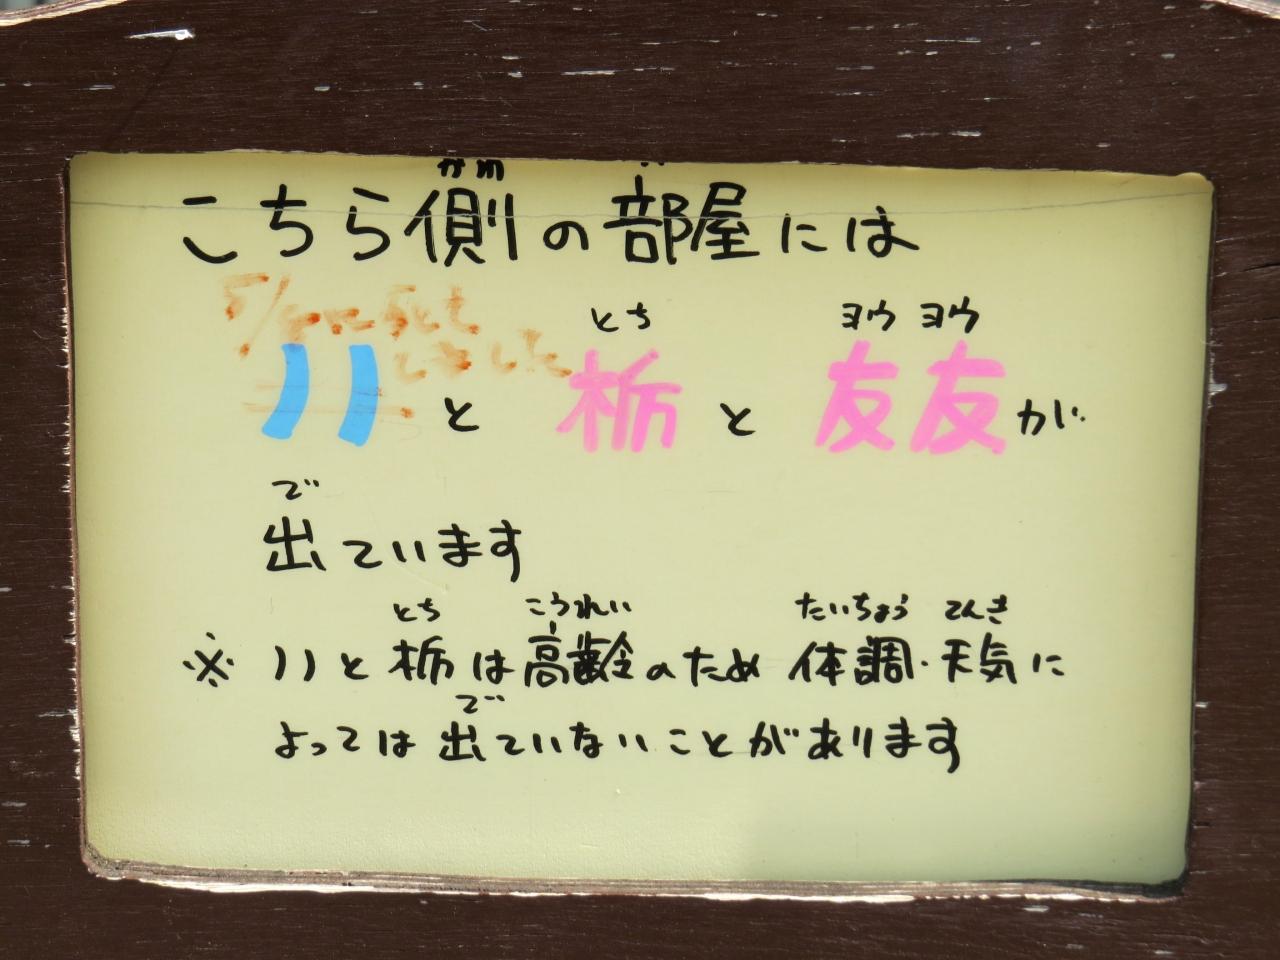 かわ
こちら側の部屋には
とち ヨウ ヨウ
ノノと栃と友友が
で
出ています
とち こうれい たいちょう てんき
※ノノと栃は高齢のため体調・天気に
で
よっては出ていないことがあります